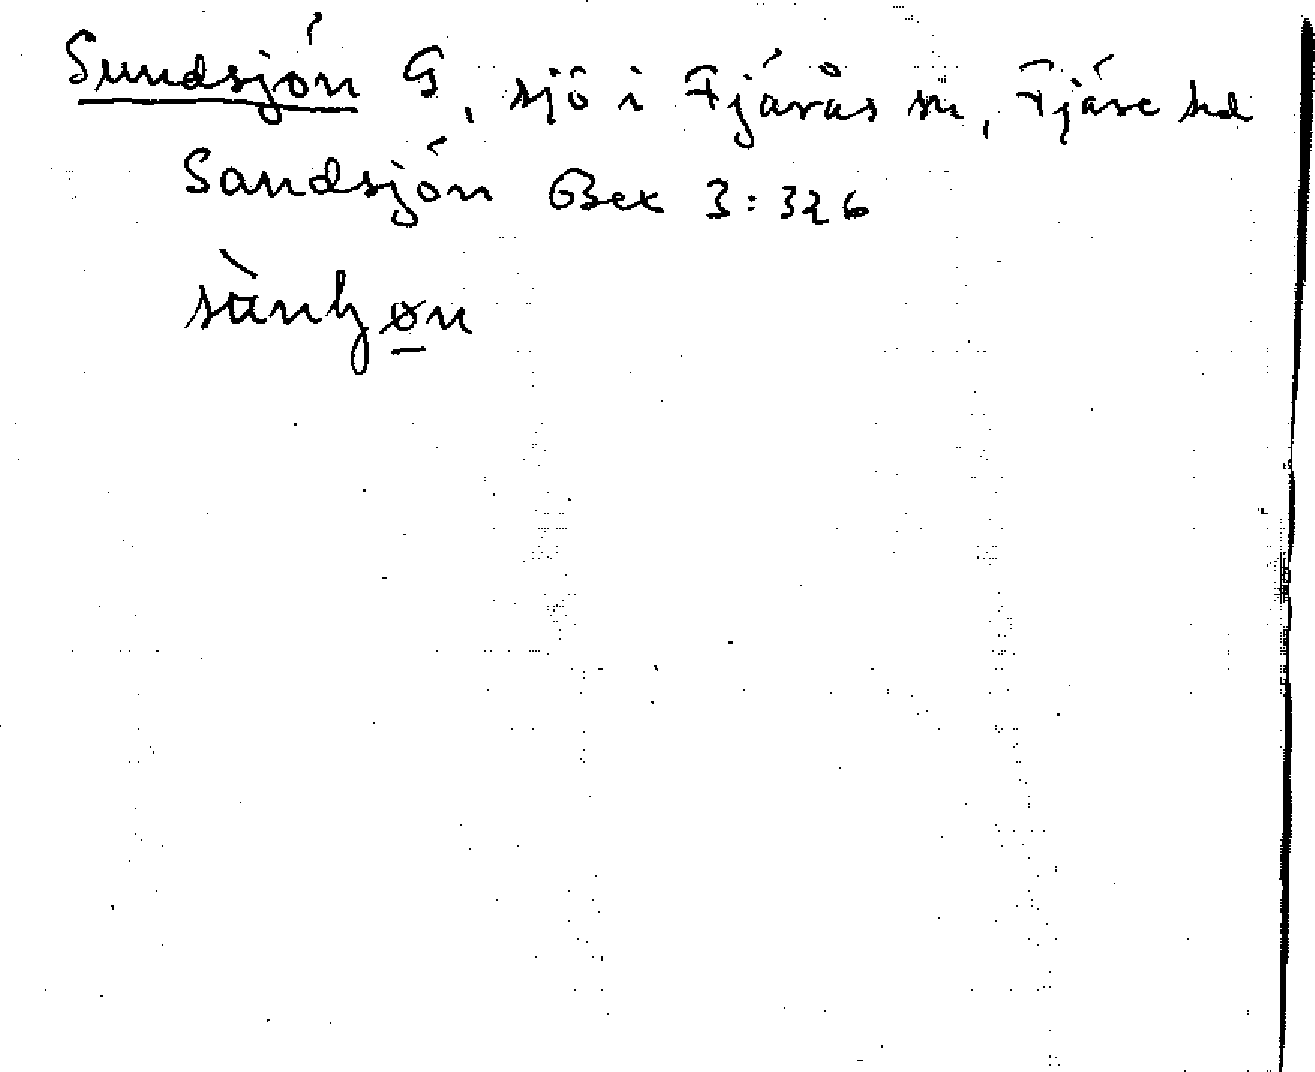 Sundsjön G, sjö i Fjärås sn, Fjäre hd
Sandsjön Bex 3:326